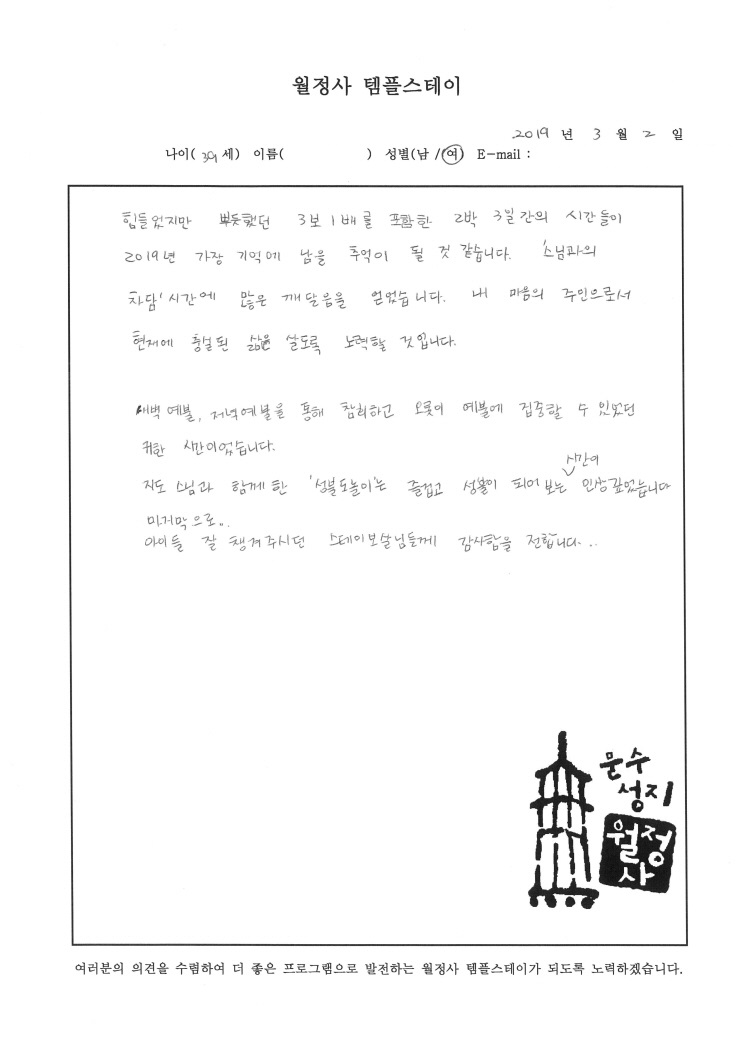 월정사 템플스테이
2019 년 3 월 2 일
나이( 39 세) 이름( ) 성별(남 / 여) E-mail :
힘들었지만 뿌듯했던 3보1배를 포함한 2박 3일간의 시간들이
2019년 가장 기억에 남을 추억이 될 것 같습니다. '스님과의
차담' 시간에 많은 깨달음을 얻었습니다. 내 마음의 주인으로서
현재에 충실된 삶을 살도록 노력할 것입니다.
새벽예불, 저녁예불을 통해 참회하고 오롯이 예불에 집중할 수 있었던
귀한 시간이었습니다.
지도 스님과 함께 한 '성불도놀이'는 즐겁고 성불이 되어 보는 시간이 인상깊었습니다
마지막으로..
아이들 잘 챙겨주시던 스테이보살님들께 감사함을 전합니다...
문수
성지
월정
사
여러분의 의견을 수렴하여 더 좋은 프로그램으로 발전하는 월정사 템플스테이가 되도록 노력하겠습니다.